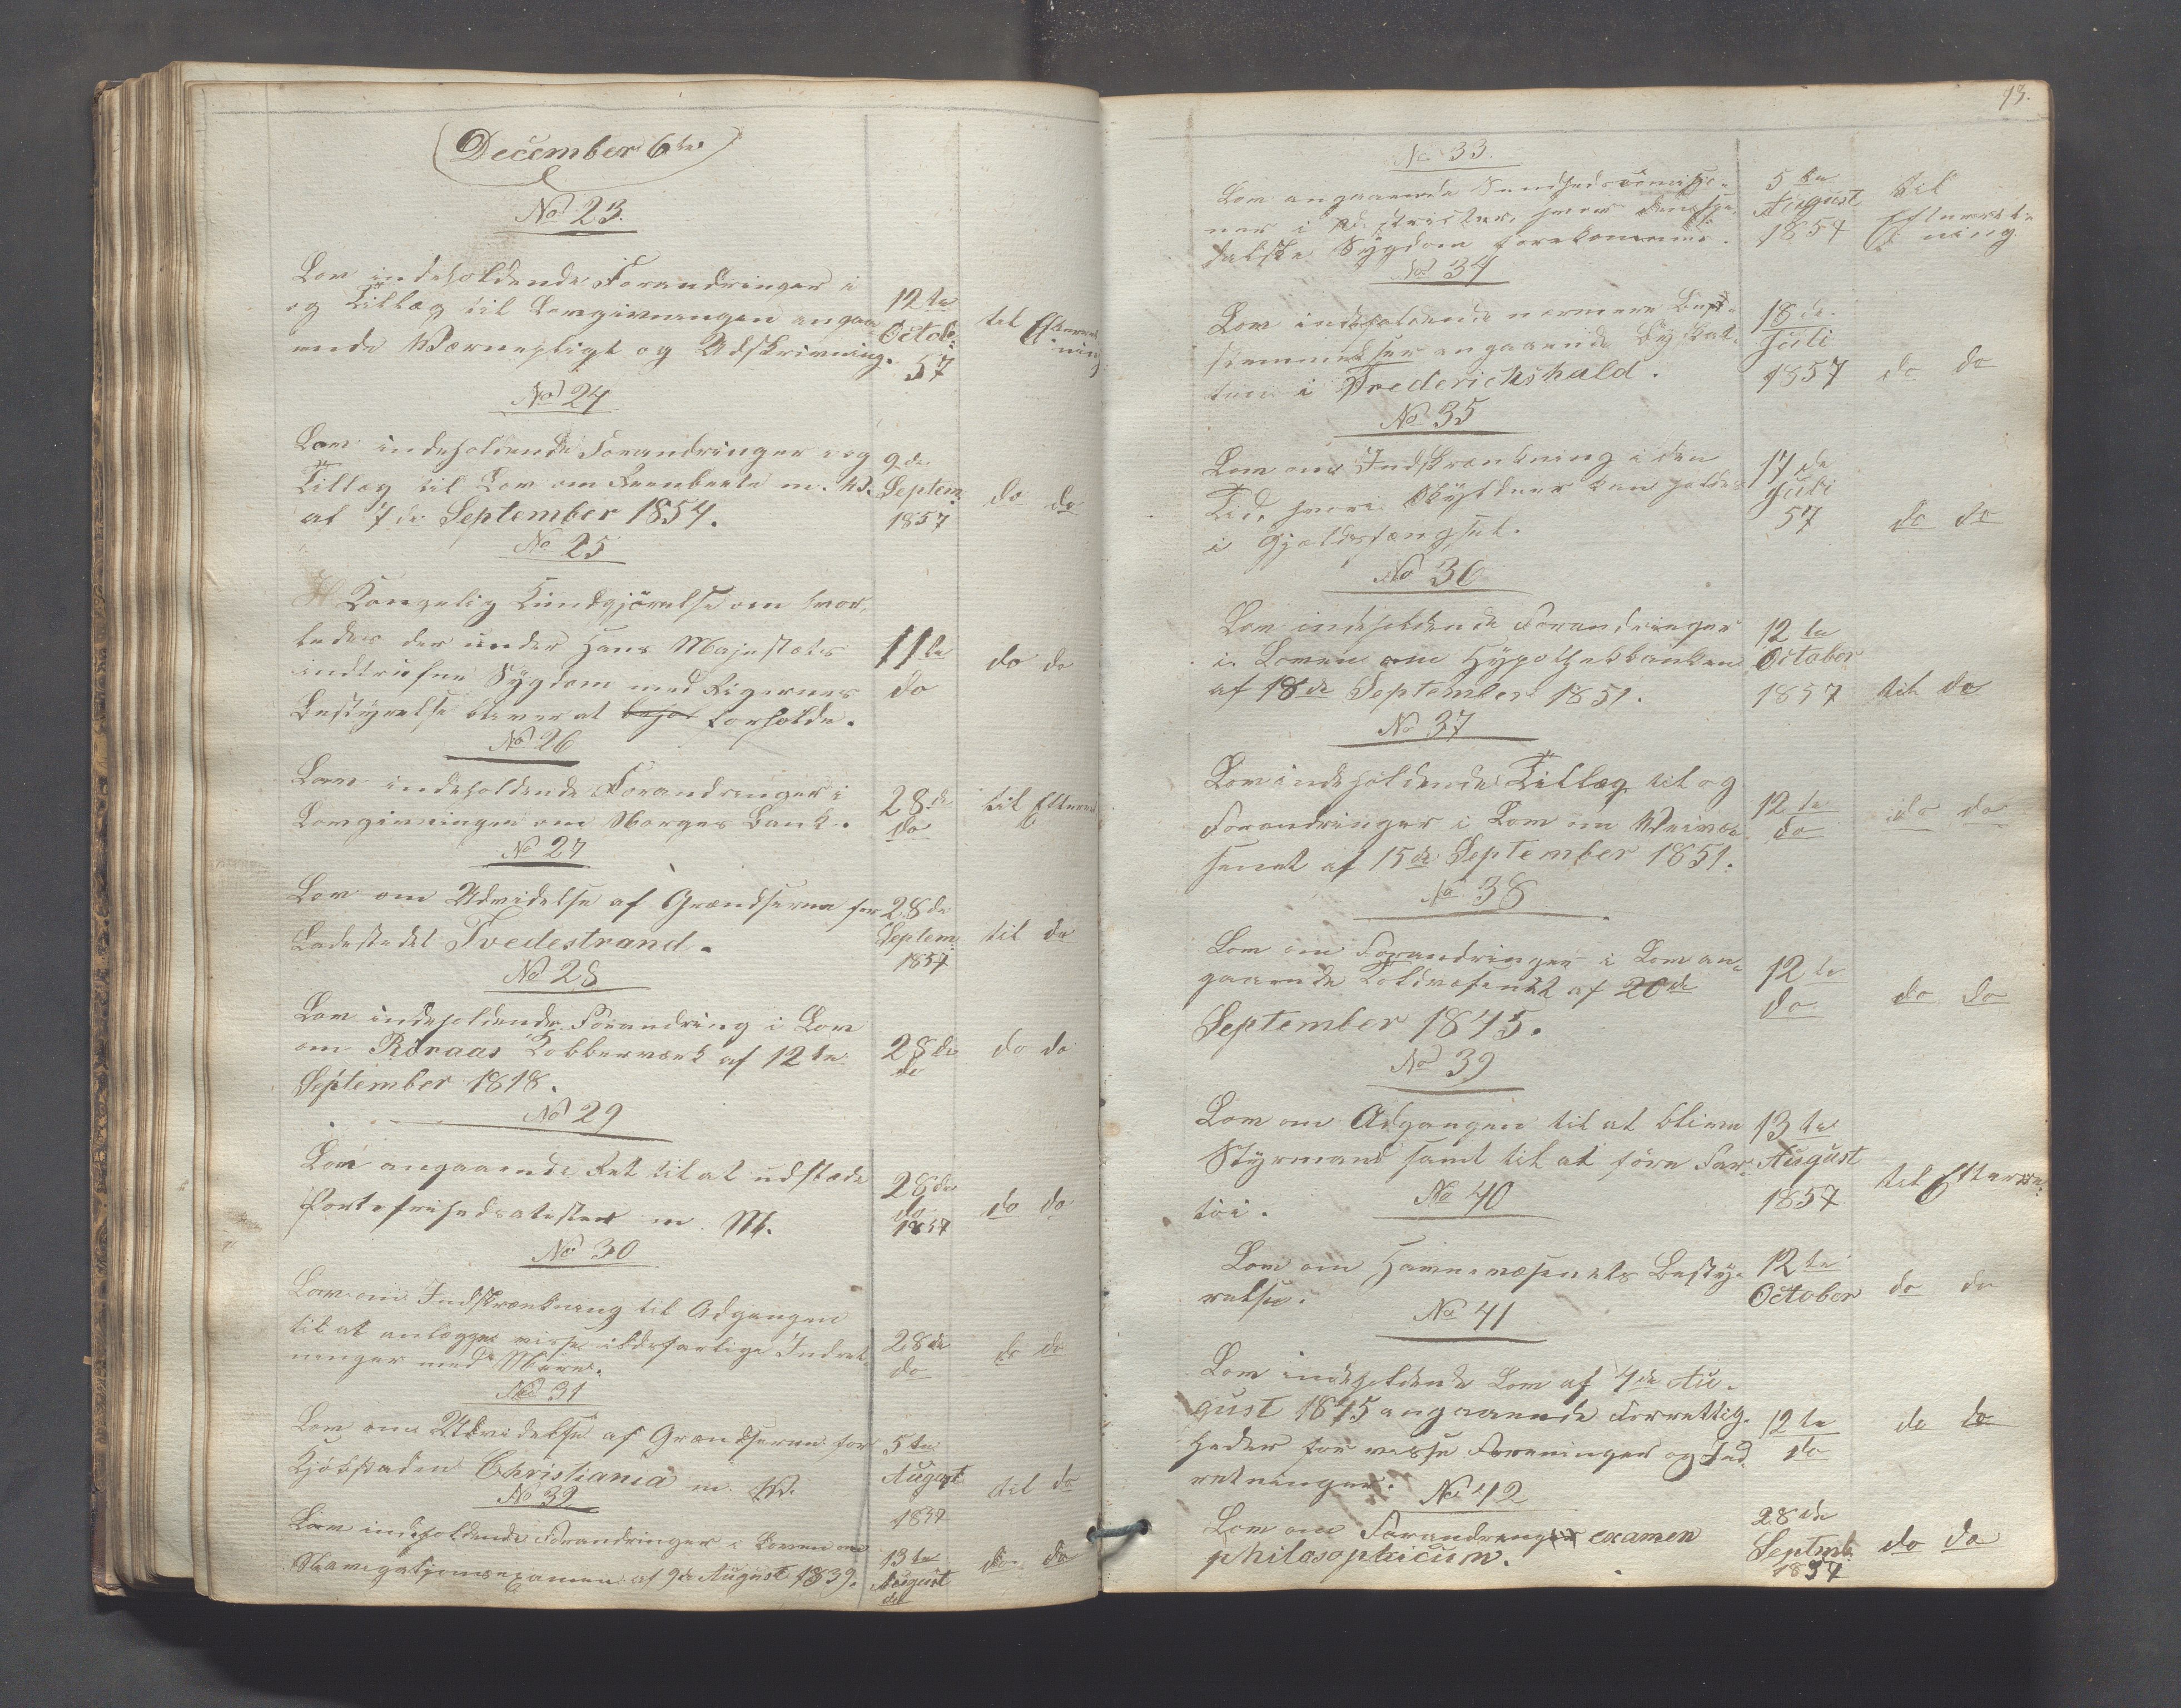 December 6te
No 23.
Lov indeholdende Forandringer i
og Tillæg til Lovgivningen angaa-
ende Værnepligt og Udskrivning.
12te
Octob.
57
til Efterret
ning
No 24
Lov indeholdende Forandringer i og
Tillæg til Lov om m. V.
af 7de September 1854.
9de
Septem
1857
do do
No 25
Kongelig Kundgjörelse om hvor-
ledes der under Hans Majestæts
indtrufne Sygdom med Rigernes
Bestyrelse bliver at forholde.
11te
do
do do
No 26
Lov indeholdende Forandringer i
Lovgivningen om Norges Bank.
28de
do
til Efterret
No 27
Lov om Udvidelse af Grændserne for
Ladestedet Tvedestrand.
28de
Septem
1857
til do
No 28
Lov indeholdende Forandring i Lov
om Röraas Kobberværk af 12te
September 1818.
28de
do
do do
No 29
Lov angaaende Ret til at udstæde
Portofrihedsatester m. M.
28de
do
1857
do do
No 30
Lov om Indskrænkning til Adgangen
til at anlægge visse ildsfarlige Indret
ninger med Mere.
28de
do
do do
No 31
Lov om Udvidelse af Grændserne for
Kjöbstaden Christiania m. V.
5te
August
1857
til do
No 32
Lov indeholdende Forandringer i Loven om
Navigationsexamen af 9de August 1839.
13te
August
do
do do
93.
No 33.
Lov angaaende Sundhedscomissio-
ner i Distrikter, hvor den spe-
dalske Sygdom forekommer.
5te
August
1857
til
Efterret
ning
No 34
Lov indeholdende nærmere Best-
emmelser angaaende Byskat-
ten i Frederichshald.
18de
Juli
1857
do do
No 35
Lov om Indskrænkning i den
Tid, hvori Skyldner kan holdes
i Gjældsfængsel.
17de
Juli
57
do do
No 36
Lov indeholdende Forandringer
i Loven om Hypothekbanken
af 18de September 1851.
12te
October
1857
til do
No 37
Lov indeholdende Tillæg til og
Forandringer i Lov om Veivæ-
senet af 15de September 1851.
12te
do
do do
No 38
Lov om Forandringer i Lov an-
gaaende Toldvæsenet af 20de
September 1845.
12te
do
do do
No 39
Lov om Adgangen til at blive
Styrmand samt til at före Far-
töi.
13te
August
1857
til Efterre.
No 40
Lov om Havnevæsenets Besty-
relse.
12te
October
do do
No 41
Lov indeholdende Lov af 4de Au-
gust 1845 angaaende Forrettig-
heder for visse Foreninger og Ind
retninger.
12te
do
do do
No 42
Lov om Forandringer examen
philosophicum.
28de
Septmb.
1857
do do